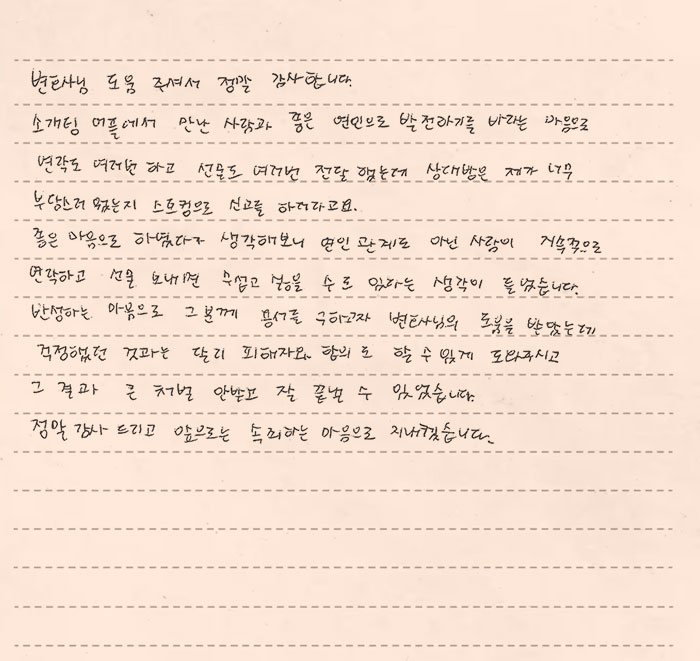 변호사님 도움 주셔서 정말 감사합니다.
소개팅 어플에서 만난 사람과 좋은 연인으로 발전하기를 바라는 마음으로
연락도 여러번 하고 선물도 여러번 전달 했는데 상대방은 제가 너무
부담스러웠는지 스토킹으로 신고를 하더라고요.
좋은 마음으로 하였다가 생각해보니 연인 관계도 아닌 사람이 지속적으로
연락하고 선물 보내면 무섭고 싫을 수도 있다는 생각이 들었습니다.
반성하는 마음으로 그분께 용서를 구하고자 변호사님의 도움을 받았는데
걱정했던 것과는 달리 피해자와 합의도 할 수 있게 도와주시고
그 결과 큰 처벌 안받고 잘 끝낼 수 있었습니다.
정말 감사 드리고 앞으로는 속죄하는 마음으로 지내겠습니다.